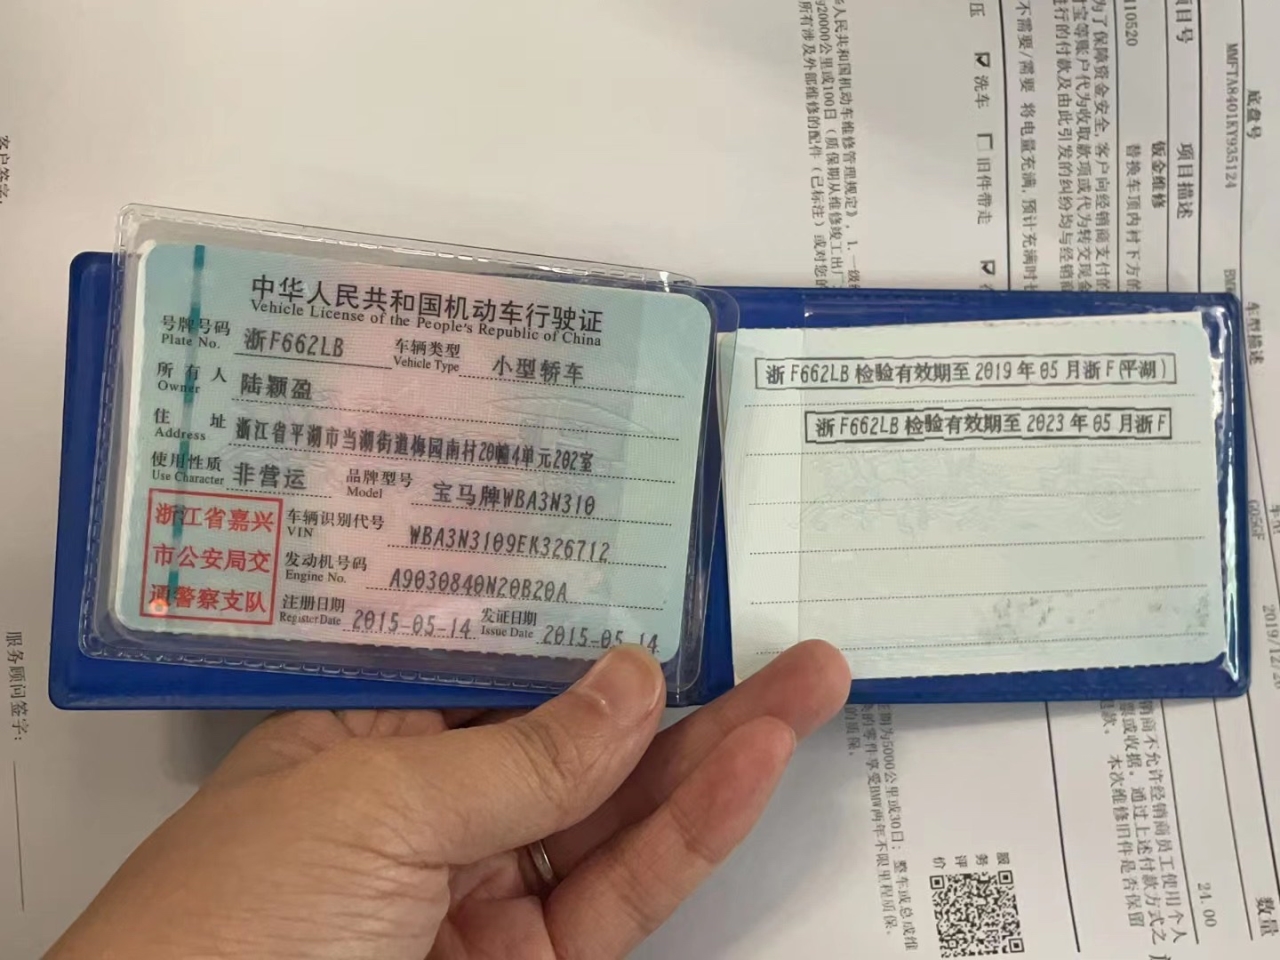 中华人民共和国机动车行驶证
Vehicle License of the People's Republic of China
号牌号码 浙F662LB 车辆类型 小型轿车
Plate No. Vehicle Type
所有人 陆颖盈
Owner
住址 浙江省平湖市当湖街道梅园南村20幢4单元202室
Address
使用性质 非营运 品牌型号 宝马牌WBA3N310
Use Character Model
浙江省嘉兴
市公安局交
通警察支队
车辆识别代号 WBA3N3109EK326712
VIN
发动机号码 A9030840N20B20A
Engine No.
注册日期 2015-05-14 发证日期 2015-05-14
Register Date Issue Date
浙F662LB检验有效期至2019年05月浙F(平湖)
浙F662LB检验有效期至2023年05月浙F
底盘号
MMFTA8401KY935124
车型描述
项目号 项目描述
钣金维修
替换车顶内衬下方的
为了保障资金安全，客户向经销商支付的
洗车 旧件带走
不需要/需要 将电量充满，预计充满时
数量
24.00
服务评价
服务顾问签字：